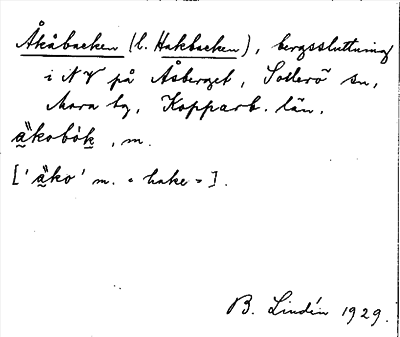 Åkåbacken (l. Hakbacken), bergssluttning
i NV på Åsberget, Sollerö sn,
Mora tg, Kopparb. län.
äkobók, m.
['äko' m. = hake =].
B. Lindén 1929.